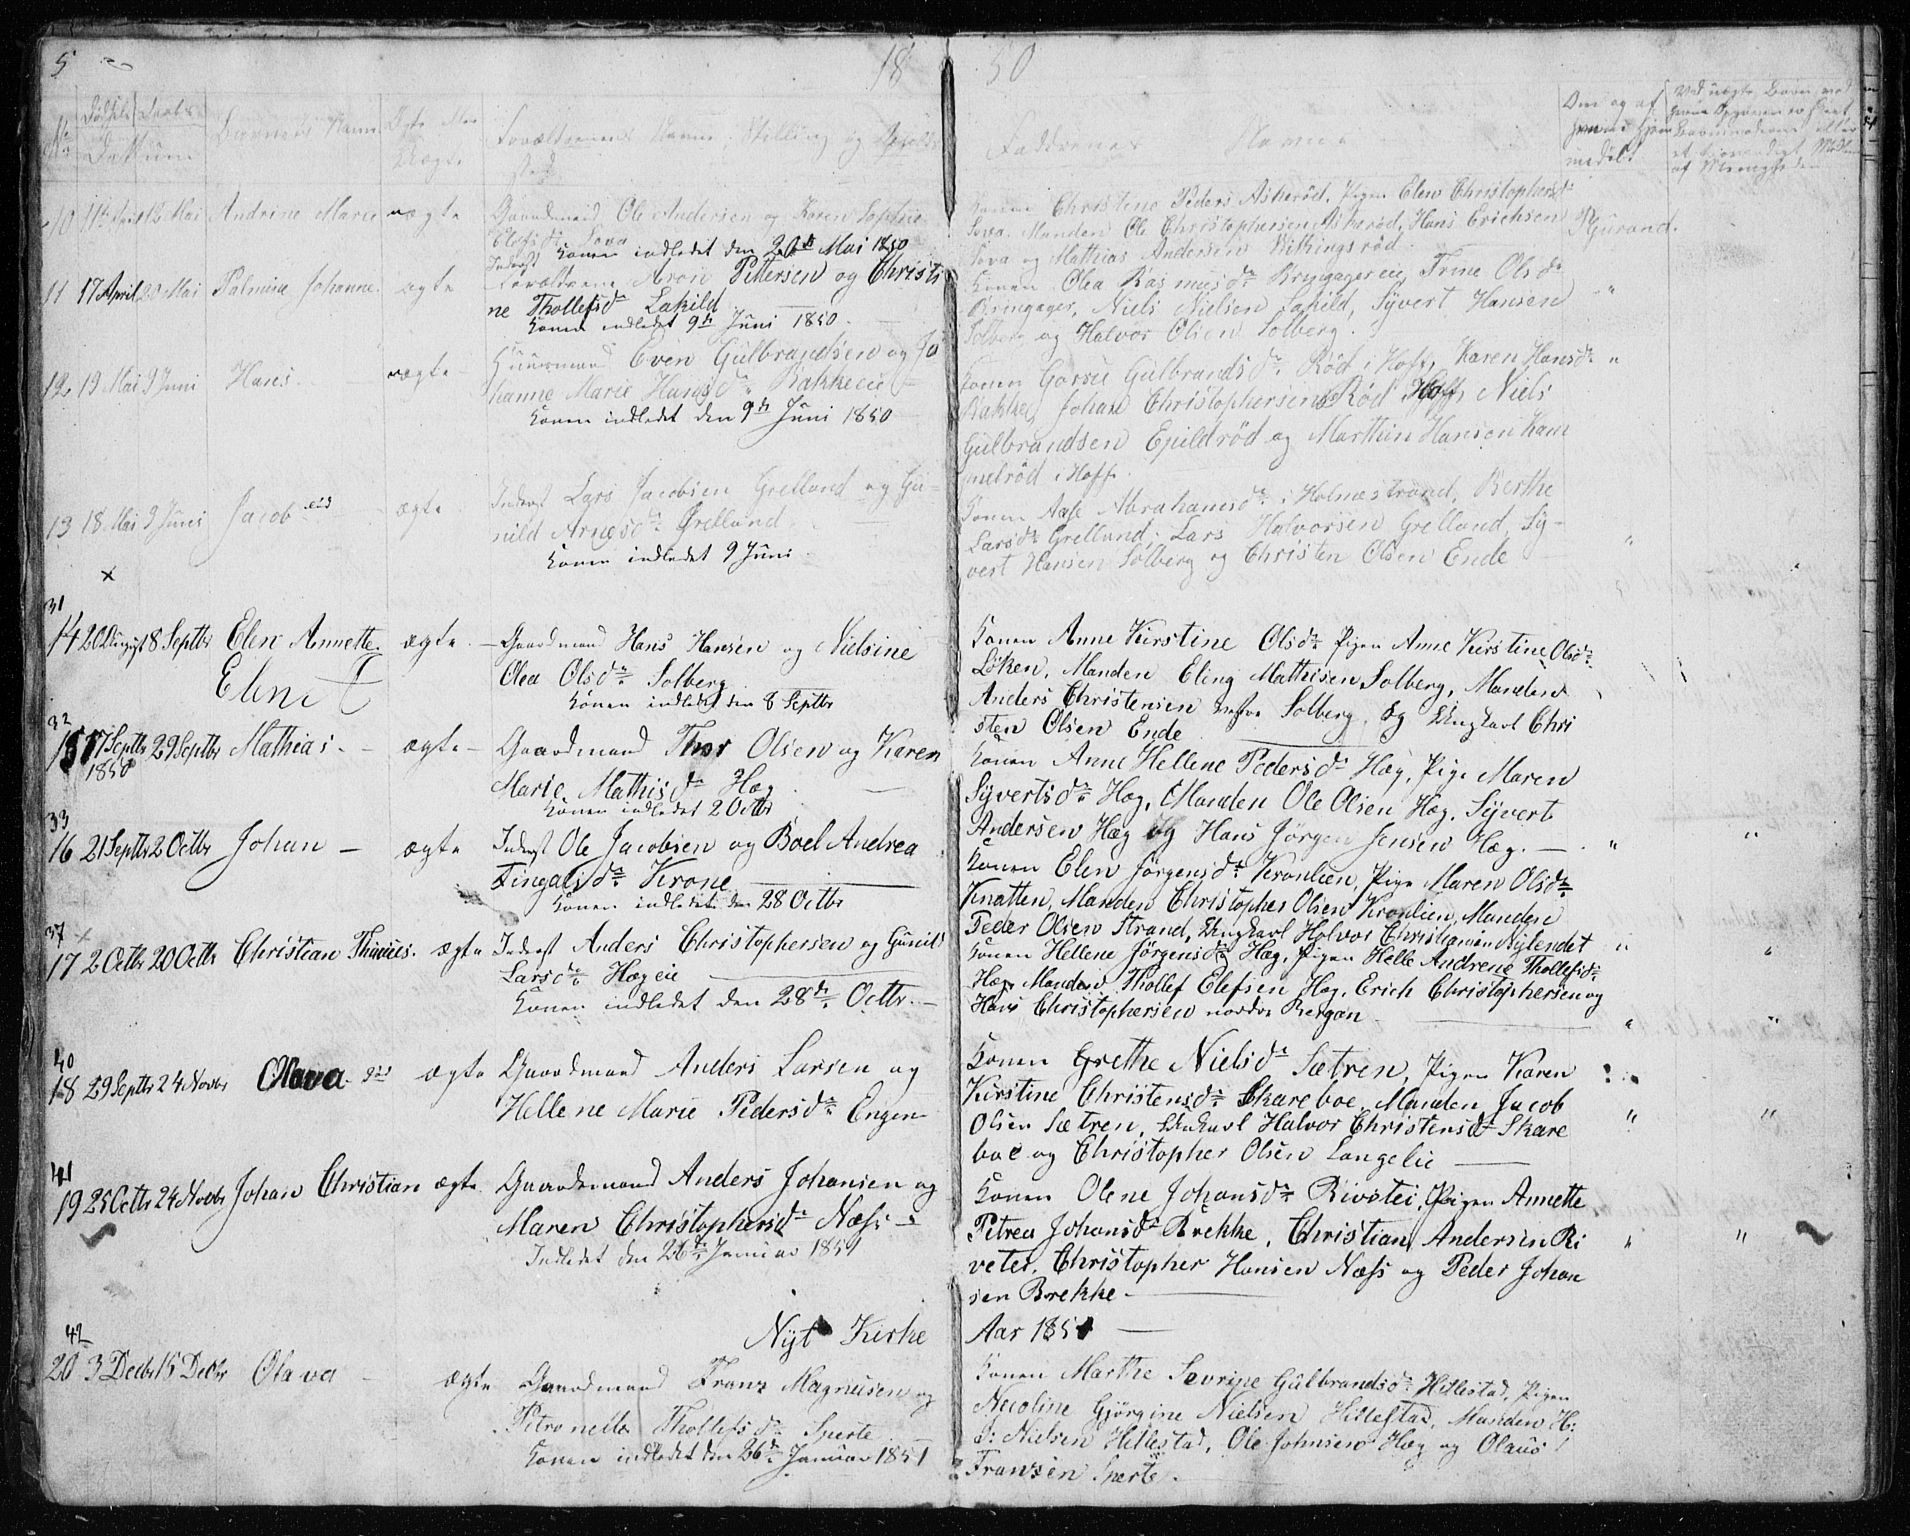 5 18 50
No Fødsels Daabs Datum Barnets Navn Ægte eller Uægte Forældrenes Navne, Stilling og
Faddrenes Navne
10 11te April 12 Mai Andrine Marie ægte Gaardmand Ole Andersen og Karen Sophie
Sova
Konen indledet den 20de Mai 1850
Konen Christine Peders Askerød, Pigen Elen Christophersdr
Sova. Manden Ole Christophersen Askerød, Hans Erichsen
Sova og Mathias Andersen Wikingsrød.
11 17 April 20 Mai Palmine Johanne ægte Forældrene Aron Pettersen og Christi
ne Thollefsdr Lakild
Konen indledet 9de Juni 1850.
Konen Olea Rasmusdr Bringager eie, Trine Olsdr
Bringager, Niels Nielsen Lakild, Syvert Hansen
Solberg og Halvor Olsen Solberg.
12 19 Mai 9 Juni Hans ægte Huusmand Even Gulbrandsen og Jo
hanne Marie Hansdr Bakke eie
Konen indledet den 9de Juni 1850
Konen Gorsie Gulbrandsdr Rød i Hoff, Karen Hansdr
Bakke, Johan Christophersen Rød i Hoff, Niels
Gulbrandsen Epildrød og Marthin Hansen Kam
melrød i Hoff.
13 18 Mai 9 Juni Jacob ægte Inderst Lars Jacobsen Grelland og Gu
nild Arnesdr Grelland
Konen indledet 9 Juni
Konen Aase Abrahamsdr i Holmestrand, Berthe
Larsdr Grelland, Lars Halvorsen Grelland, Sy-
vert Hansen Solberg og Christen Olsen Ende
31
14 20 August 8 Septbr Elen Annette ægte Gaardmand Hans Hansen og Nielsine
Elen
Olea Olsdr Solberg
Konen indledet den 8 Septbr
Konen Anne Kirstine Olsdr Pigen Anne Kirstine Olsdr
Løken, Manden Eling Mathisen Solberg, Manden
Anders Christensen Solberg, og Ungkarl Chri
sten Olsen Ende
32
15 17 Septbr 29 Septbr Mathias ægte Gaardmand Thor Olsen og Karen
1850
Marie Mathisdr Hæg
Konen indledet 2 Octbr
Konen Anne Hellene Pedersdr Hæg, Pige Maren
Syvertsdr Hæg, Manden Ole Olsen Hæg, Syvert
Andersen Hæg og Hans Jørgen Jensen Hæg.
33
16 21 Septbr 2 Octbr Johan ægte Inderst Ole Jacobsen og Boel Andrea
Fingalsdr Krone
Konen indledet den 28 Octbr
Konen Elen Jørgensdr Kronlien, Pige Maren Olsdr
Knatten, Manden Christopher Olsen Kronlien, Manden
Peder Olsen Strand, Ungkarl Halvor Christiansen Nylendet
37
17 2 Octbr 20 Octbr Christian Thinius ægte Inderst Anders Christophersen og Gunild
Larsdr Hægeie
Konen indledet den 28de Octbr.
Konen Hellene Jørgensdr Hæg, Pigen Helle Andrene Thollefsdr
Hæg, Manden Thollef Elefsen Hæg, Erich Christophersen og
Hans Christophersen nordre Bergan
40
18 29 Septbr 24 Novbr Olava ægte Gaardmand Anders Larsen og
Hellene Marie Pedersdr Engen
Konen Grethe Nielsdr Sætren, Pigen Karen
Kirstine Christensdr Skareboe, Manden Jacob
Olsen Sætren, Ungkarl Halvor Christensdr Skare
boe og Christopher Olsen Langelie
41
19 25 Octbr 24 Novbr Johan Christian ægte Gaardmand Anders Johansen og
Maren Christophersdr Næss
Indledet den 26de Januar 1851
Konen Olene Johansdr Rivetei, Pigen Annette
Petrea Johansdr Brekke, Christian Andersen Ri
vetei, Christopher Hansen Næss og Peder Johan
sen Brekke
Nyt Kirke Aar 1851
42
20 3 Decbr 15 Decbr Olava ægte Gaardmand Franz Magnusen og
Petronelle Thollefsdr Sperte
Konen indledet den 26de Januar 1851
Konen Marthe Sevrine Gulbrandsdr Hillestad, Pigen
Nicoline Gjørgine Nielsen Hillestad, Manden H:
J: Nielsen Hillestad, Ole Johnsen Hæg og Olaus
Fransen Sperte.